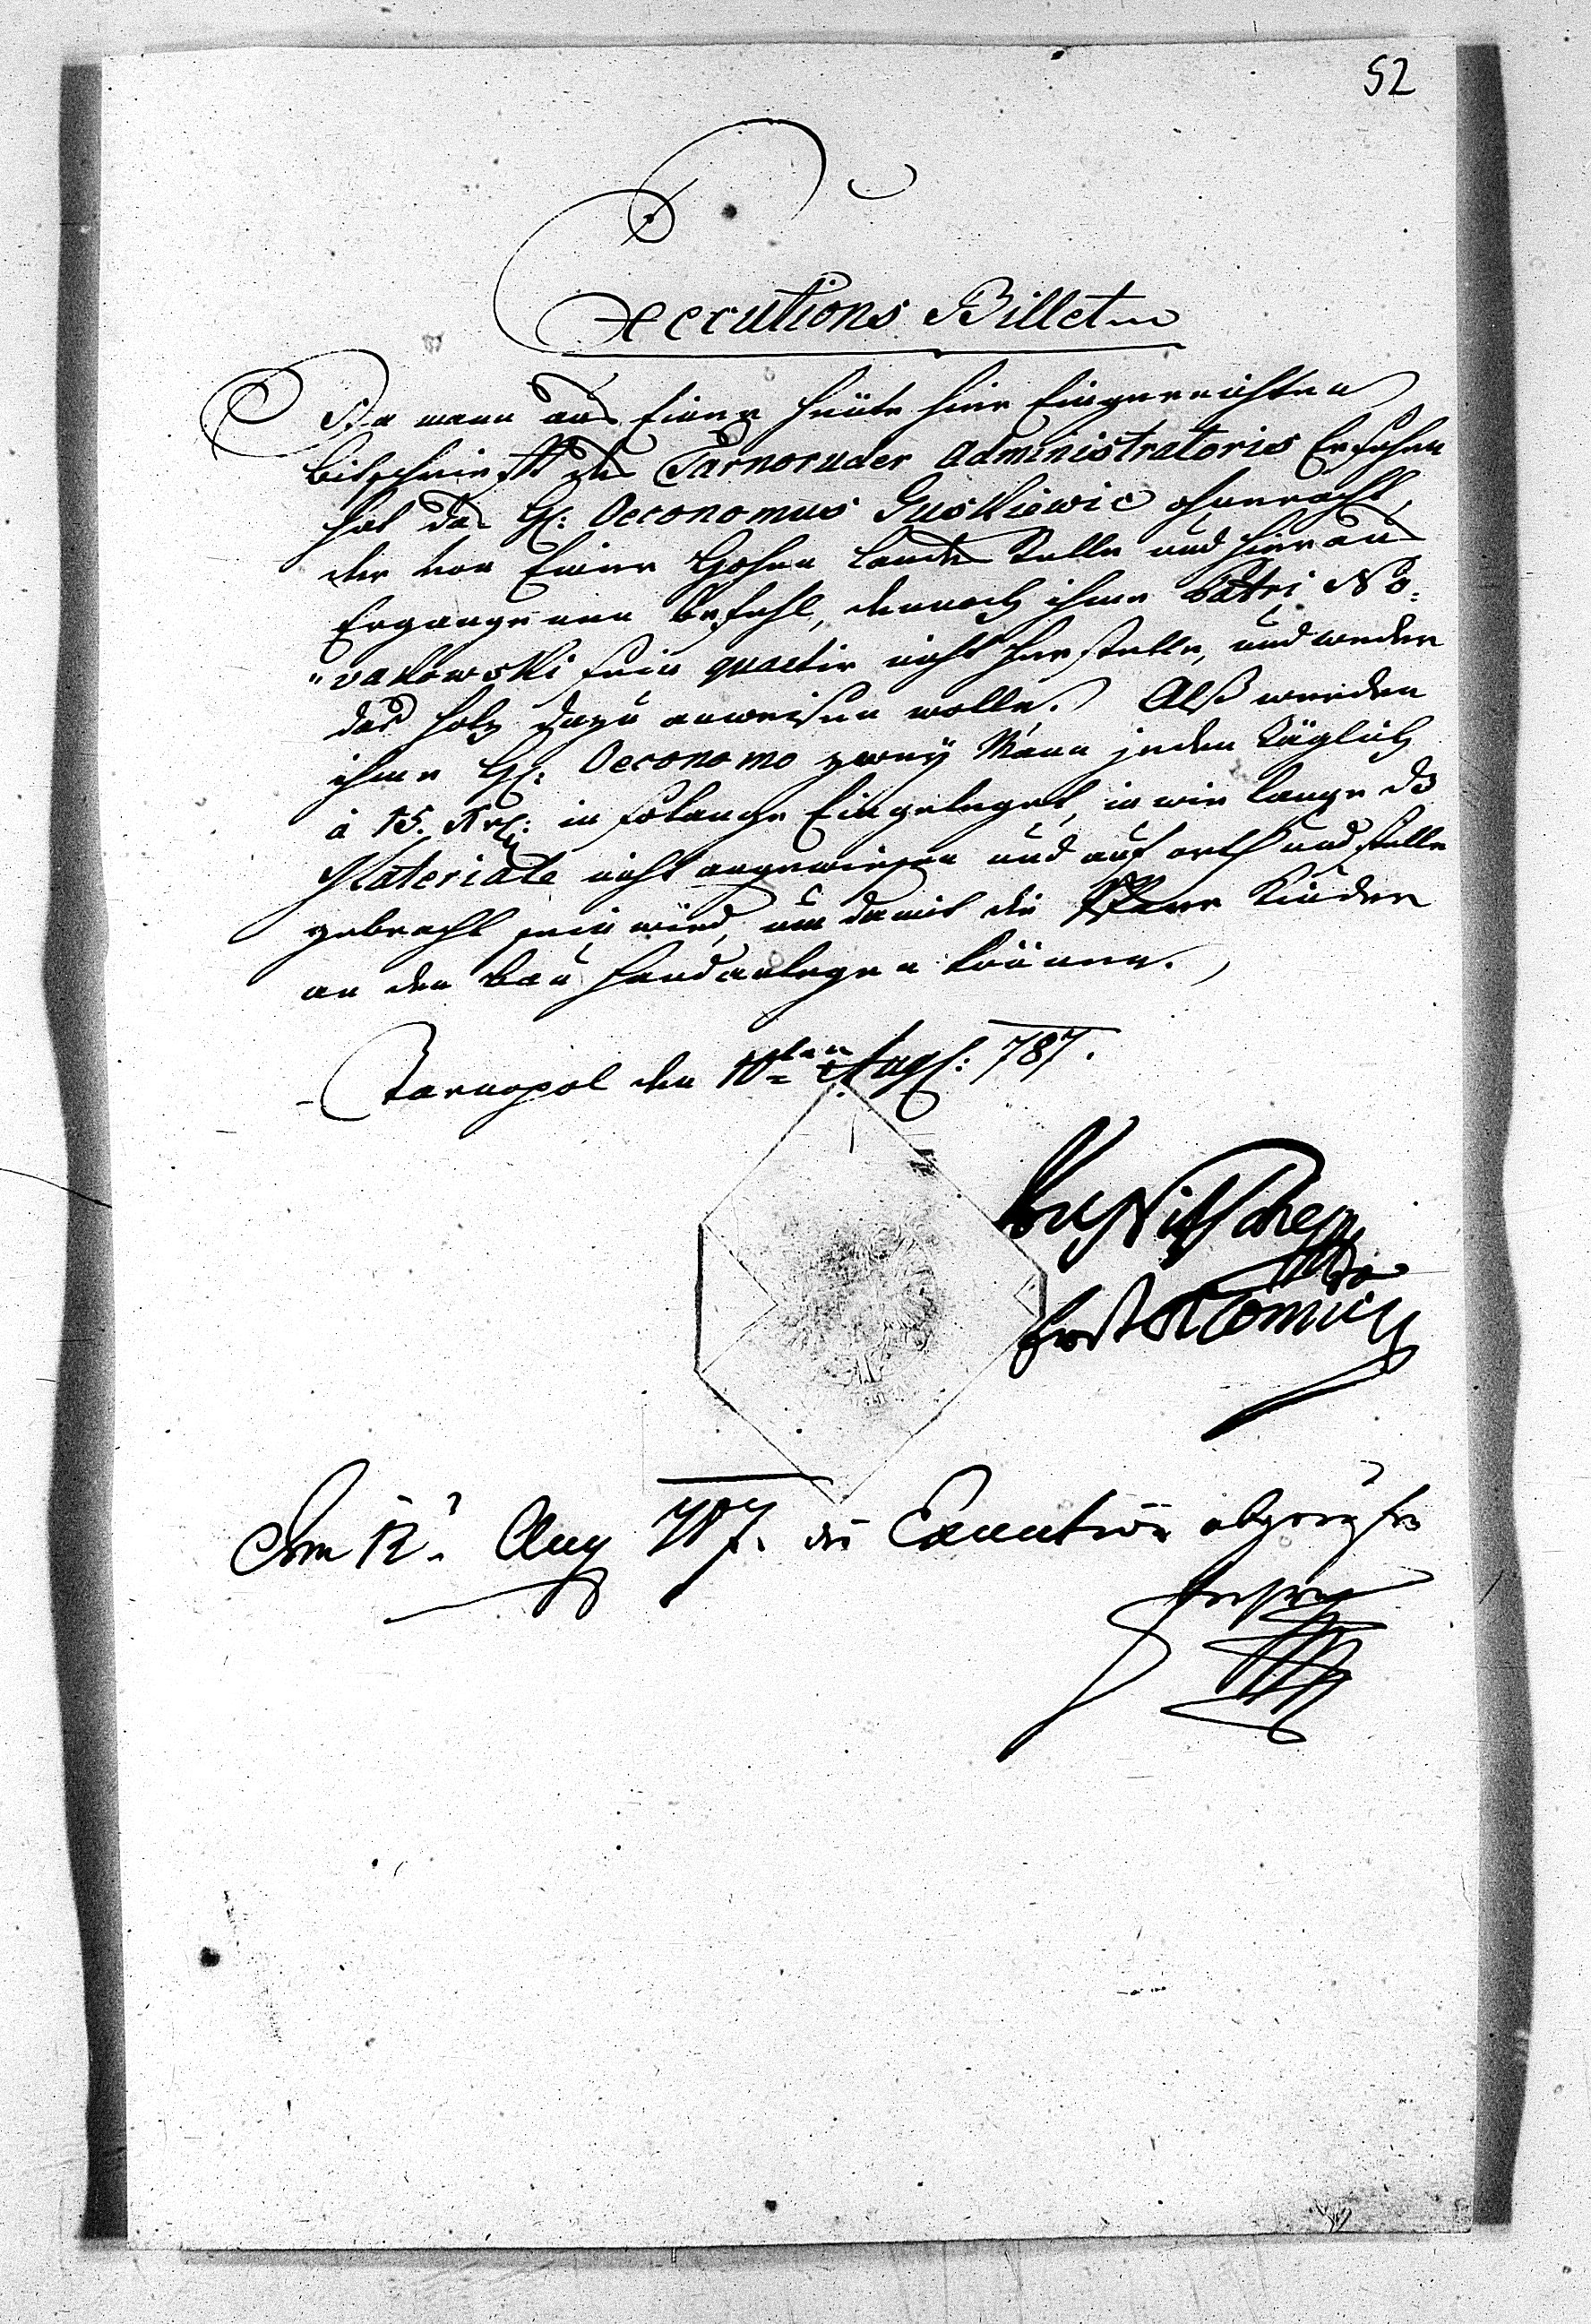 52
Executions Billet
Da mann aus Einer heüte hier Eingereichten
bitschrieft des Tarnoruder Administratoris Erfahren
hat daß H: Oeconomus Guskiewic ohneracht,
der von Einer Hohen Landes Stelle und hieraus
Ergangenen befehl, dennoch ihme Patri No=
"vakowski sein quartir nicht herstelle, und weder
das holz dazu anweisen wolle. Alß werden
ihme H: Oeconomo zweÿ Mann jeden täglich
à 15. Kr: in solange Eingeleget, in wie lange die
Materiale nicht angewiesen und auf orth und stelle
gebracht sein wird, um damit die Pfarr Kinder
an den bau handanlegen können.
Tarnopol den 10ten Aug: 787.
Am 12. Aug 787. die Execution